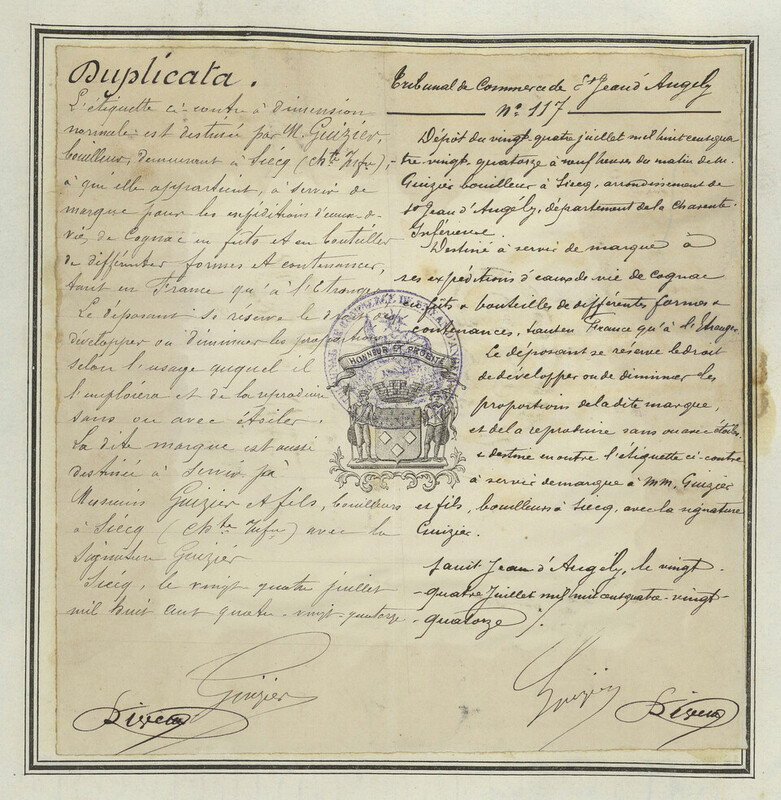 Duplicata.
L'étiquette ci-contre à dimension
normale est destinée par M. Guizier,
bouilleur, demeurant à Siecq (Chte Infre),
à qui elle appartient, à servir de
marque pour les expéditions d'eaux-de-
vie de Cognac en futs et en bouteilles
de différentes formes et contenances,
tant en France qu'à l'Etranger
Le déposant se reserve le droit de
développer ou diminuer les proportions
selon l'usage auquel il
l'emploiera et de la reproduire
sans ou avec étoiles.
La dite marque est aussi
destinée à servir pr
Messieurs Guizier et fils, bouilleurs
à Siecq (Chte Infre) avec la
signature Guizier
Siecq, le vingt quatre juillet
mil huit cent quatre-vingt-quatorze
Guizier
Tribunal de Commerce de St Jean d'Angély
No 117
Dépôt du vingt-quatre juillet mil huit cent qua
tre-vingt-quatorze à neuf heures du matin de M.
Guizier bouilleur à Siecq, arrondissement de
St Jean d'Angély, département de la Charente-
Inférieure.
Destiné à servir de marque à
ses expéditions d'eaux de vie de Cognac
en fûts & bouteilles de différentes formes &
contenances, tant en France qu'à l'Etranger
Le déposant se réserve le droit
de développer ou de diminuer les
proportions de la dite marque,
et de la reproduire sans ou avec étoiles
& destine en outre l'étiquette ci-contre
à servir de marque à MM. Guizier
et fils, bouilleurs à Siecq, avec la signature
Guizier.
Saint Jean d'Angély, le vingt-
quatre juillet mil huit cent quatre-vingt-
quatorze
Guizier
HONNEUR ET PROBITÉ